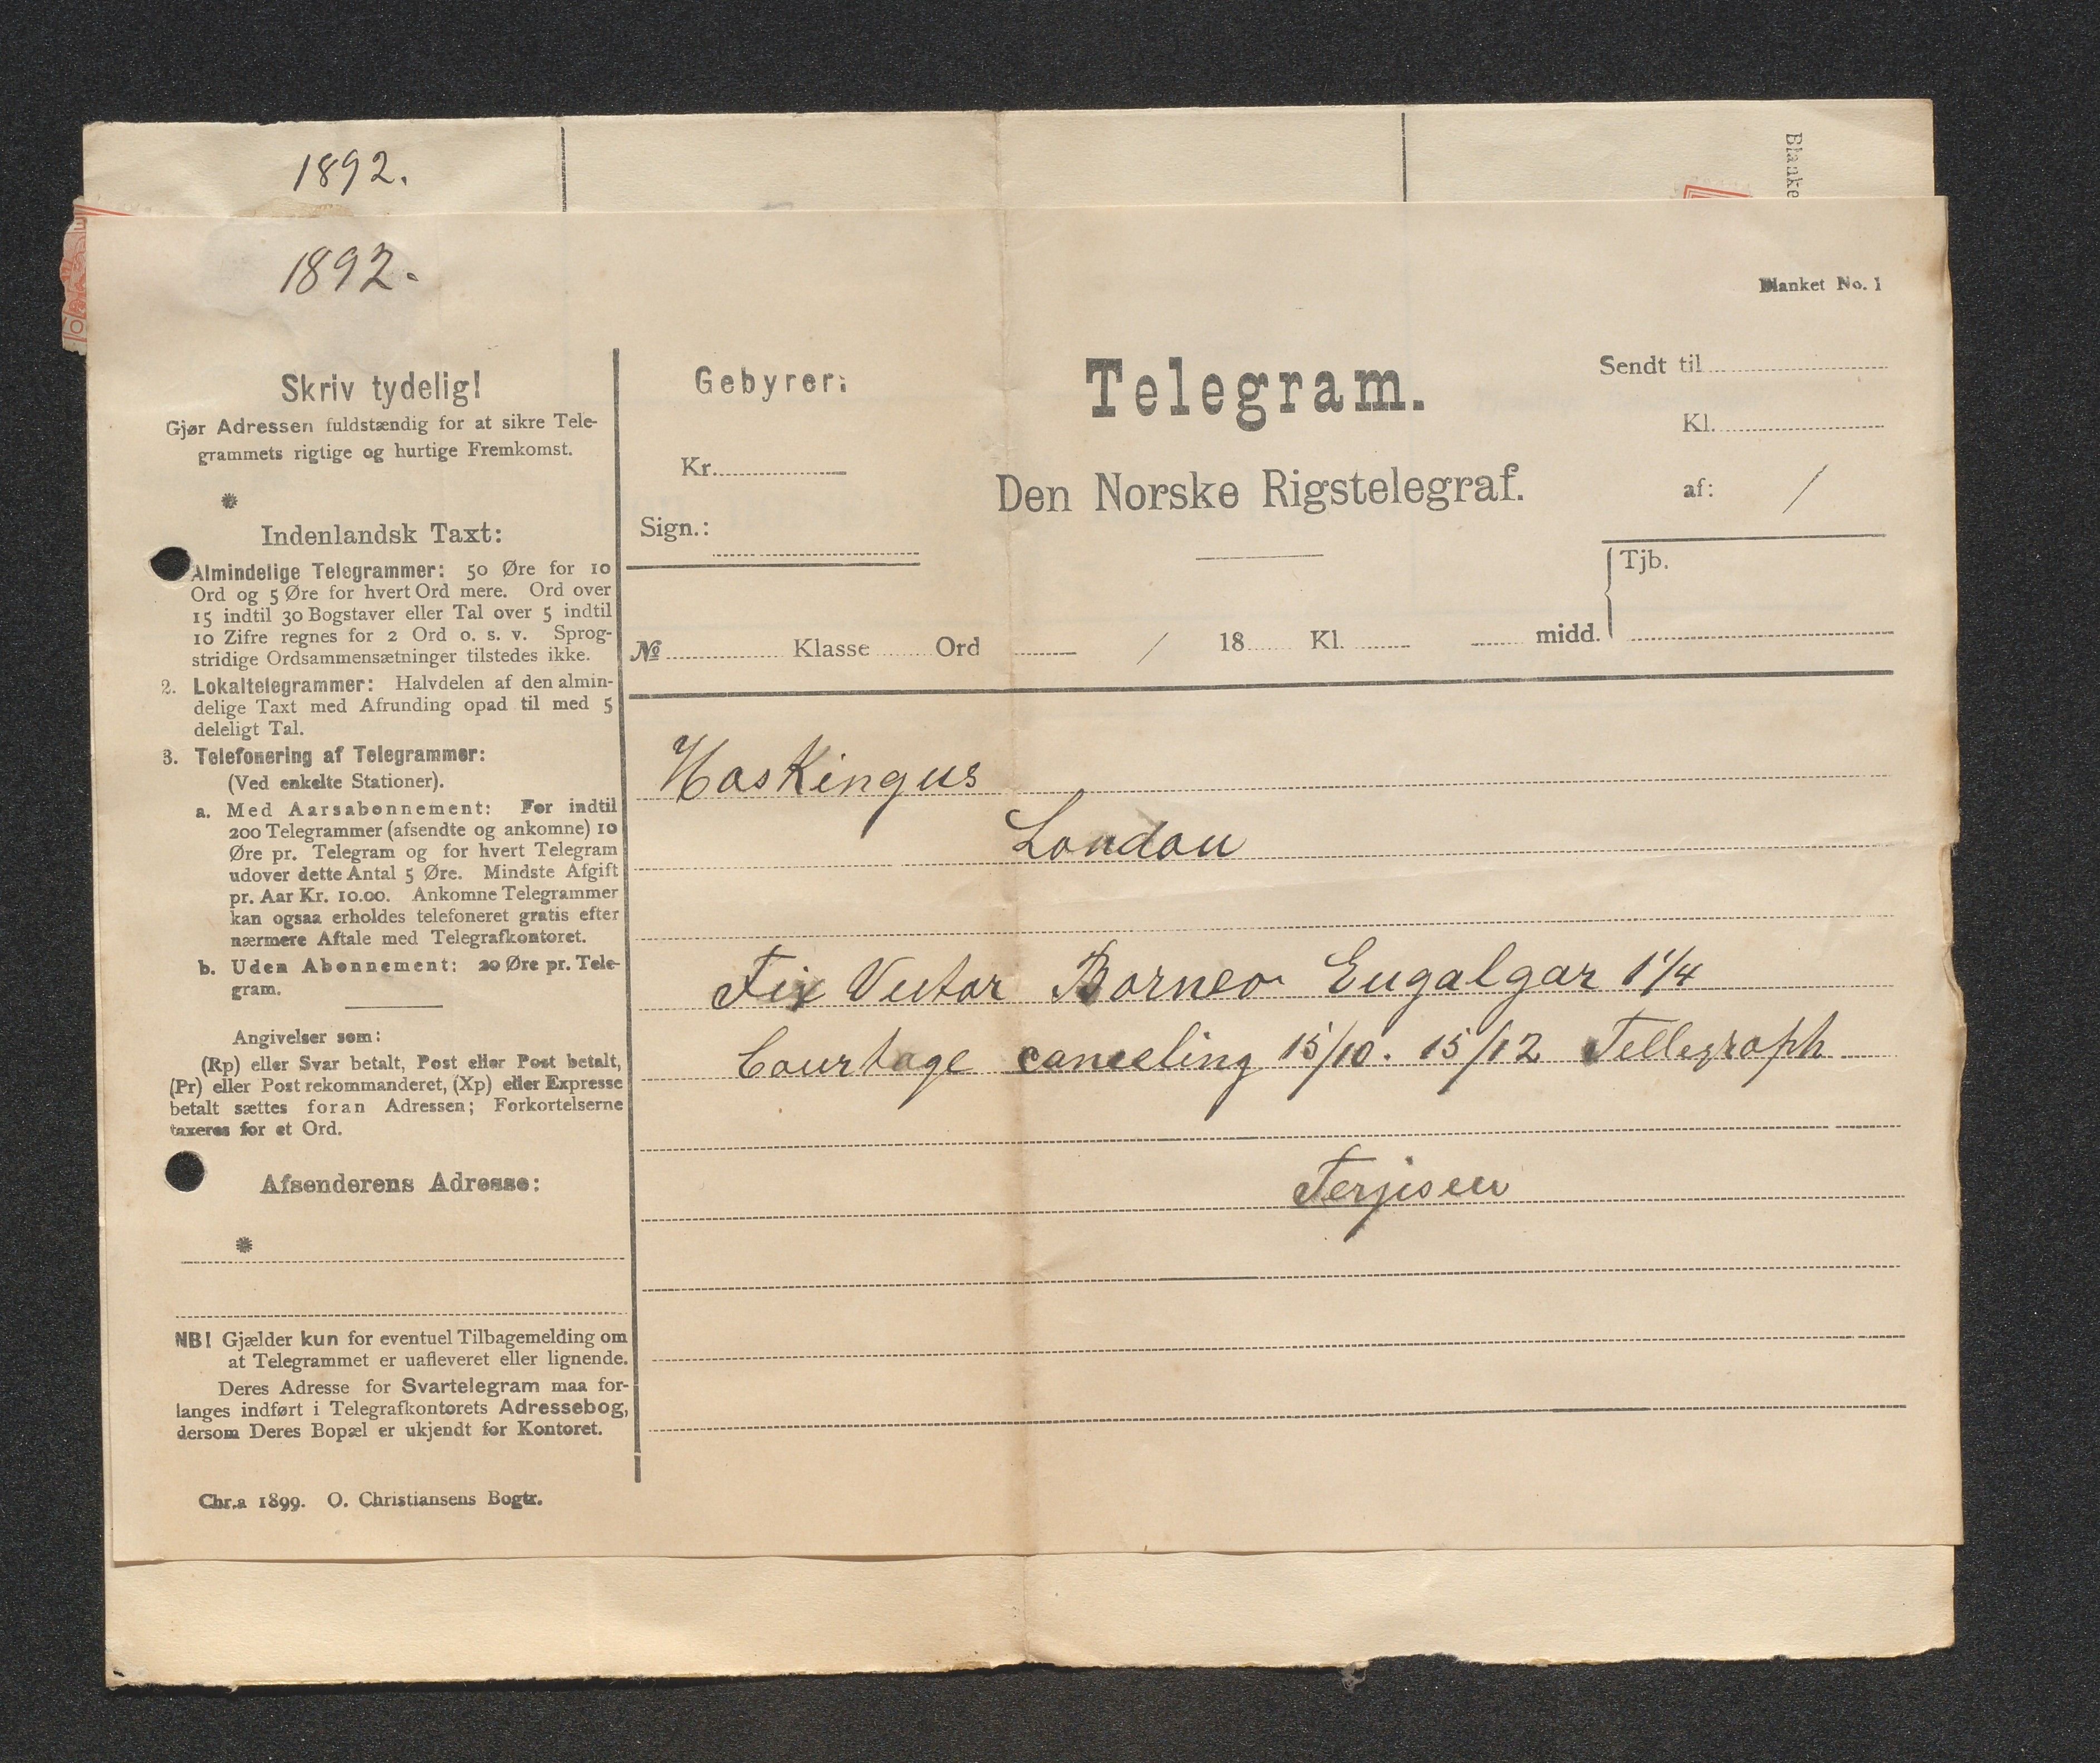 1892.
Blanke
1892.
Blanket No. 1
Skriv tydelig!
Gjør Adressen fuldstændig for at sikre Tele-
grammets rigtige og hurtige Fremkomst.
Indenlandsk Taxt:
Almindelige Telegrammer: 50 Øre for 10
Ord og 5 Øre for hvert Ord mere. Ord over
15 indtil 30 Bogstaver eller Tal over 5 indtil
10 Zifre regnes for 2 Ord o. s. v. Sprog-
stridige Ordsammensætninger tilstedes ikke.
2. Lokaltelegrammer: Halvdelen af den almin-
delige Taxt med Afrunding opad til med 5
deleligt Tal.
3. Telefonering af Telegrammer:
(Ved enkelte Stationer).
a. Med Aarsabonnement: For indtil
200 Telegrammer (afsendte og ankomne) 10
Øre pr. Telegram og for hvert Telegram
udover dette Antal 5 Øre. Mindste Afgift
pr. Aar Kr. 10.00. Ankomne Telegrammer
kan ogsaa erholdes telefoneret gratis efter
nærmere Aftale med Telegrafkontoret.
b. Uden Abonnement: 20 Øre pr. Tele-
gram.
Angivelser som:
(Rp) eller Svar betalt, Post eller Post betalt,
(Pr) eller Post rekommanderet, (Xp) eller Expresse
betalt sættes foran Adressen; Forkortelserne
taxeres for et Ord.
Afsenderens Adresse:
NB! Gjælder kun for eventuel Tilbagemelding om
at Telegrammet er uafleveret eller lignende.
Deres Adresse for Svartelegram maa for-
langes indført i Telegrafkontorets Adressebog,
dersom Deres Bopæl er ukjendt for Kontoret.
Chr.a 1899. O. Christiansens Bogtr.
Gebyrer:
Kr.
Sign.:
Telegram.
Den Norske Rigstelegraf.
Sendt til
Kl.
af: /
Tjb.
№ Klasse Ord / 18 Kl. midd.
Hoskingus
London
Fix Victor Borneo Eugalgar 1 1/4
Courtage canceling 15/10. 15/12 Tellegraph
Terjesen